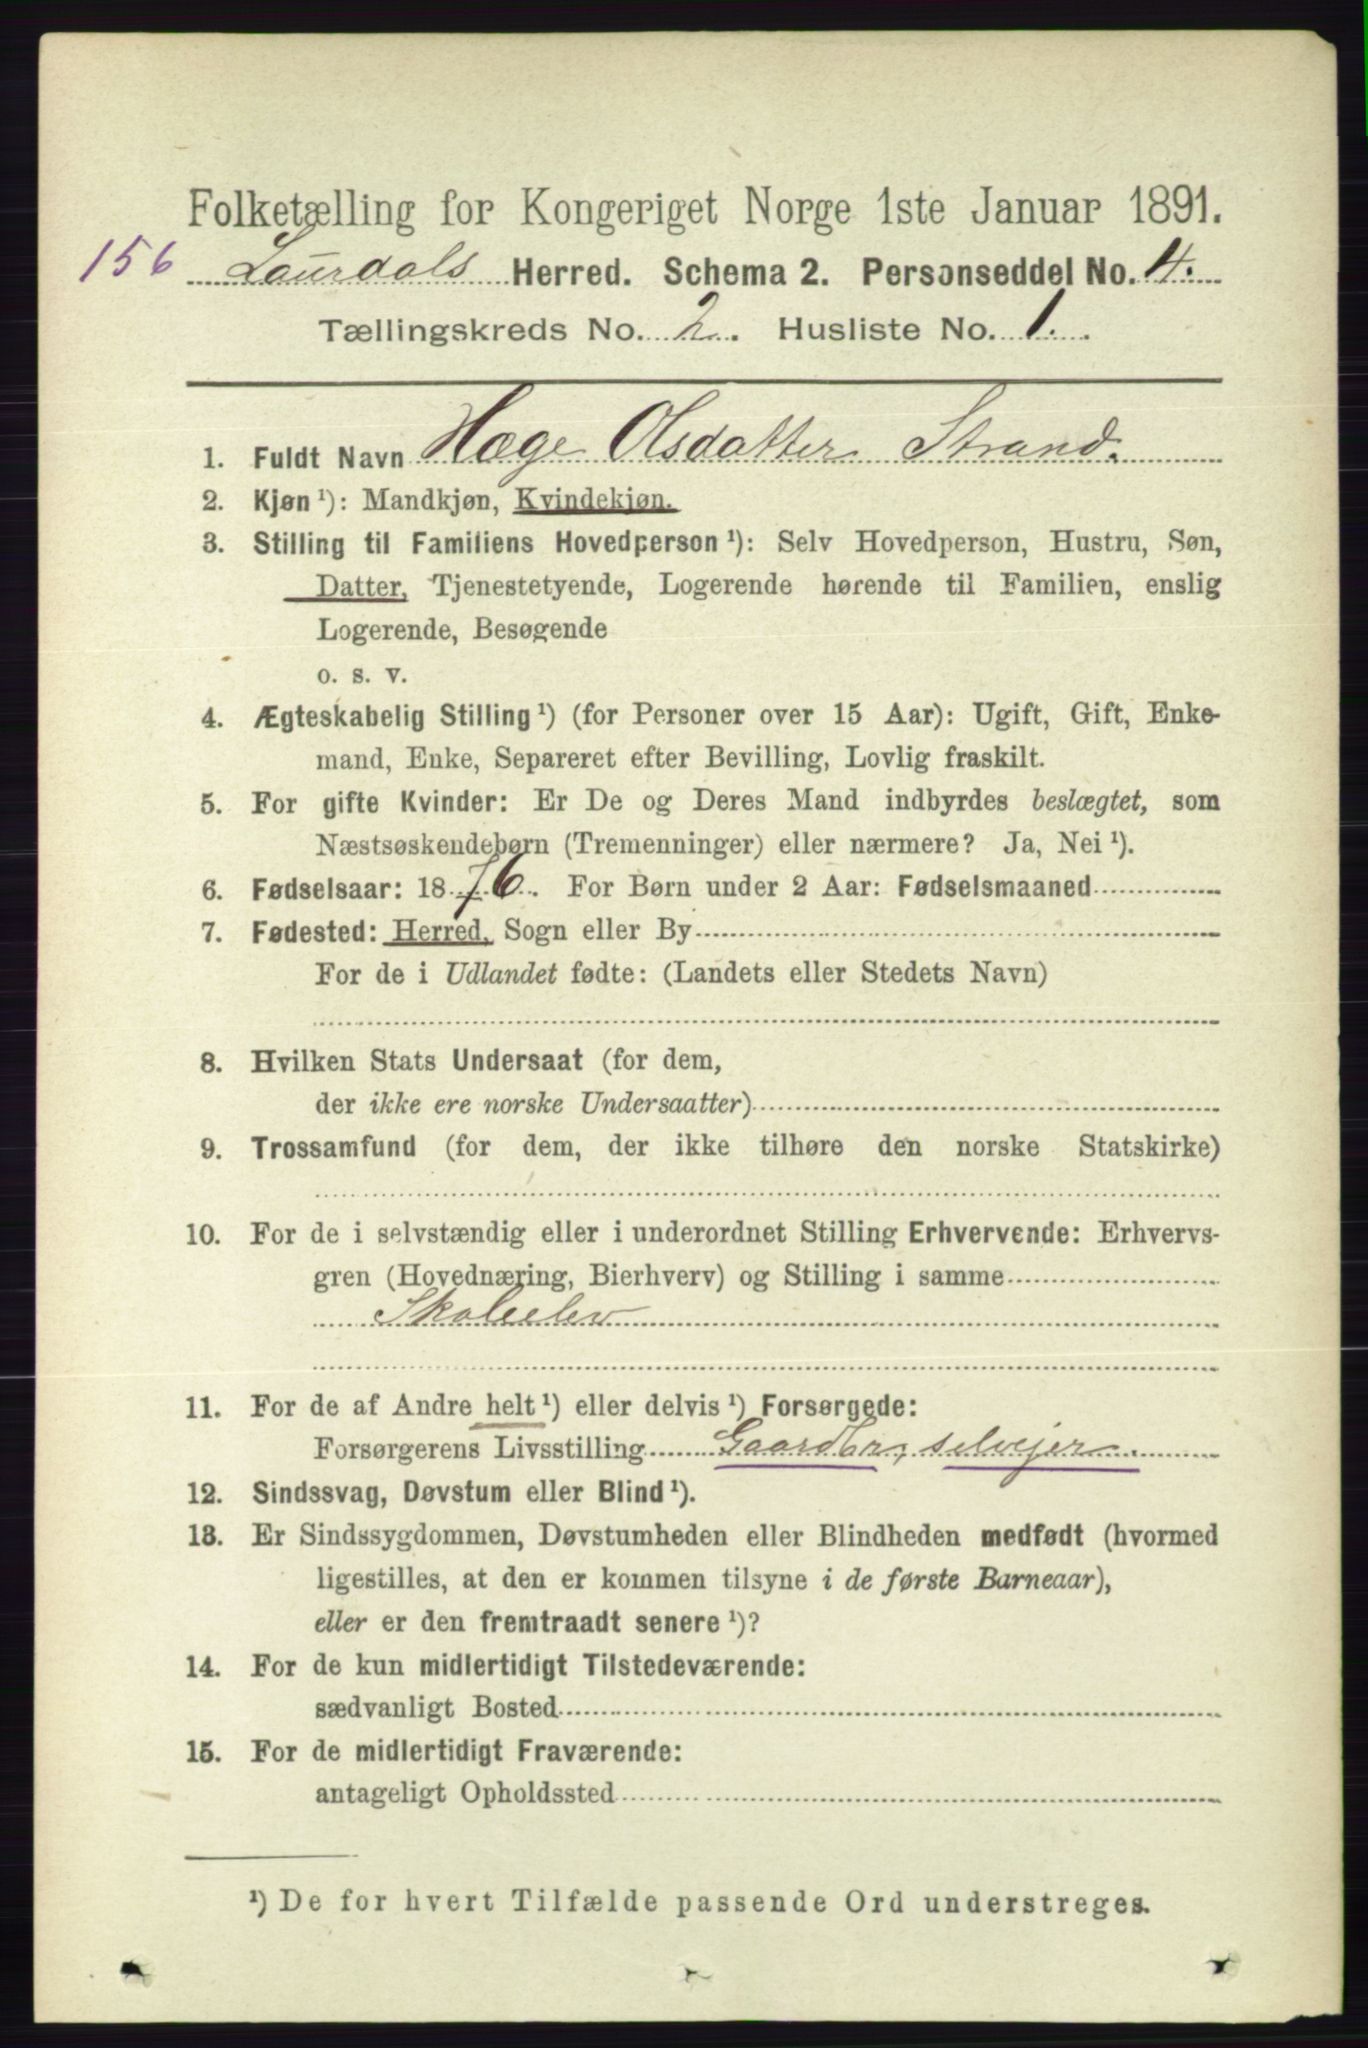 Folketælling for Kongeriget Norge 1ste Januar 1891.
156 Laurdals Herred. Schema 2. Personseddel No. 4.
Tællingskreds No. 2. Husliste No. 1.
1. Fuldt Navn Hæge Olsdatter Strand.
2. Kjøn ¹): Mandkjøn, Kvindekjøn.
3. Stilling til Familiens Hovedperson ¹): Selv Hovedperson, Hustru, Søn,
Datter, Tjenestetyende, Logerende hørende til Familien, enslig
Logerende, Besøgende
o. s. v.
4. Ægteskabelig Stilling ¹) (for Personer over 15 Aar): Ugift, Gift, Enke-
mand, Enke, Separeret efter Bevilling, Lovlig fraskilt.
5. For gifte Kvinder: Er De og Deres Mand indbyrdes beslægtet, som
Næstsøskendebørn (Tremenninger) eller nærmere? Ja, Nei ¹).
6. Fødselsaar: 1876. For Børn under 2 Aar: Fødselsmaaned
7. Fødested: Herred, Sogn eller By
For de i Udlandet fødte: (Landets eller Stedets Navn)
8. Hvilken Stats Undersaat (for dem,
der ikke ere norske Undersaatter)
9. Trossamfund (for dem, der ikke tilhøre den norske Statskirke)
10. For de i selvstændig eller i underordnet Stilling Erhvervende: Erhvervs-
gren (Hovednæring, Bierhverv) og Stilling i samme
Skoleelev
11. For de af Andre helt ¹) eller delvis ¹) Forsørgede:
Forsørgerens Livsstilling Gaardbr, selvejer.
12. Sindssvag, Døvstum eller Blind ¹).
13. Er Sindssygdommen, Døvstumheden eller Blindheden medfødt (hvormed
ligestilles, at den er kommen tilsyne i de første Barneaar),
eller er den fremtraadt senere ¹)?
14. For de kun midlertidigt Tilstedeværende:
sædvanligt Bosted
15. For de midlertidigt Fraværende:
antageligt Opholdssted
¹) De for hvert Tilfælde passende Ord understreges.